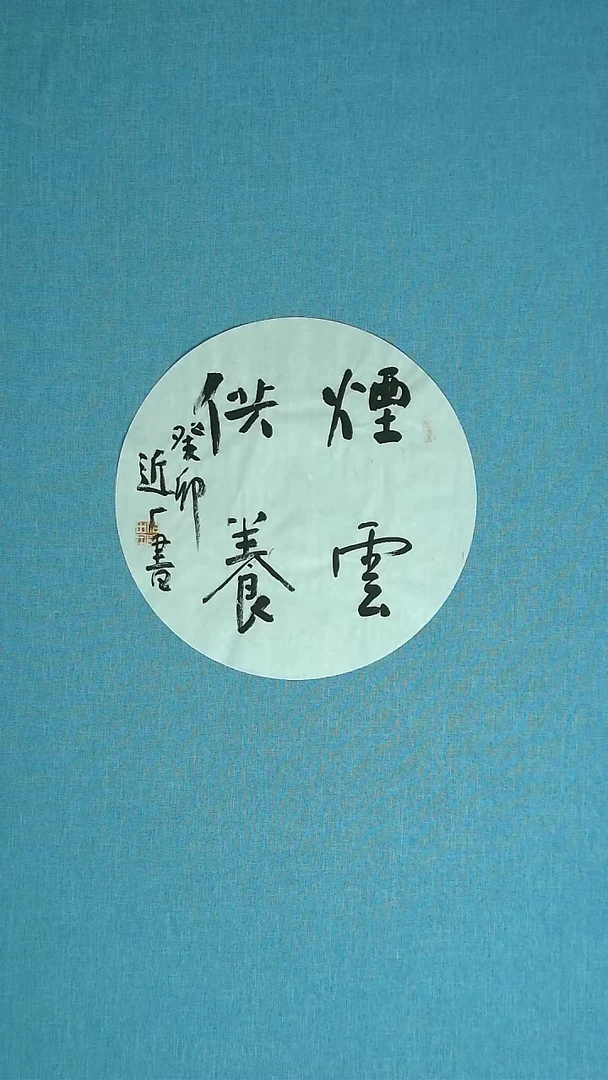 煙雲
供養
癸卯
近上書